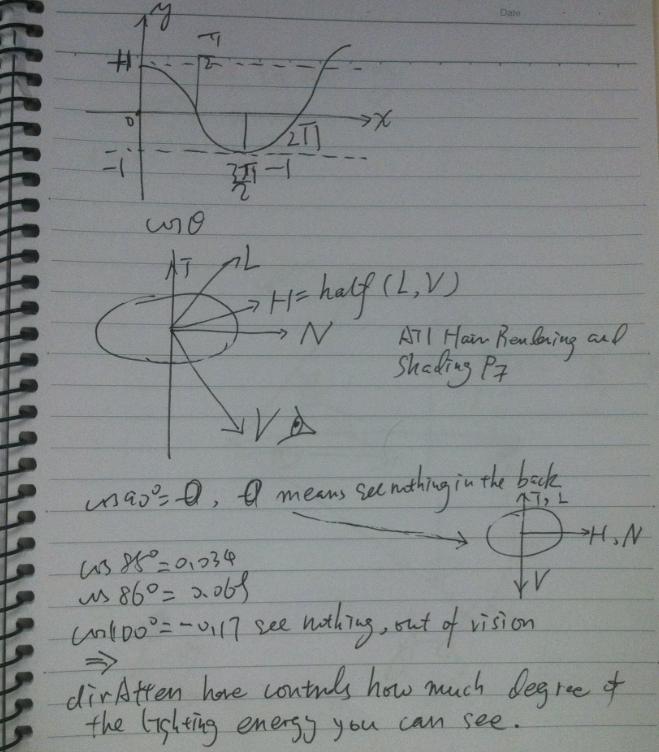 Date
y
π/2
+1
0
x
2π
-1
3π/2 -1
cosθ
T
L
H = half (L, V)
N
ATI Hair Rendering and
Shading P7
V
cos90° = 0, 0 means see nothing in the back
T, L
H, N
V
cos 88° = 0.034
cos 86° = 0.069
cos100° = -0.17 see nothing, out of vision
⇒
dirAtten here controls how much degree of
the lighting energy you can see.